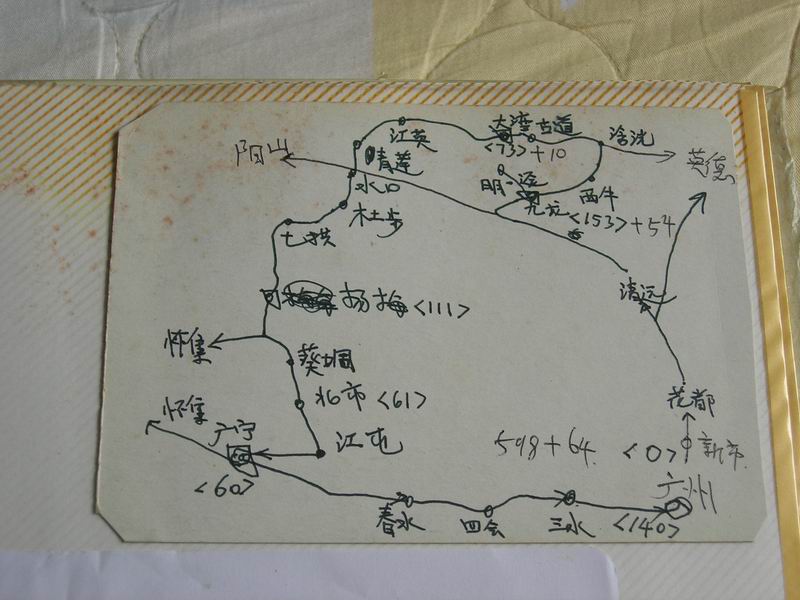 江英
大湾 古道
浛洸
<73>+10
阳山
青莲
英德
明迳
水口
西牛
九龙
<153>+54
杜步
七拱
清远
扬梅<111>
怀集
葵垌
花都
北市 <61>
怀集
广宁
江屯
598+64.
<0>
新市
<60>
广州
春水
四会
三水
<140>